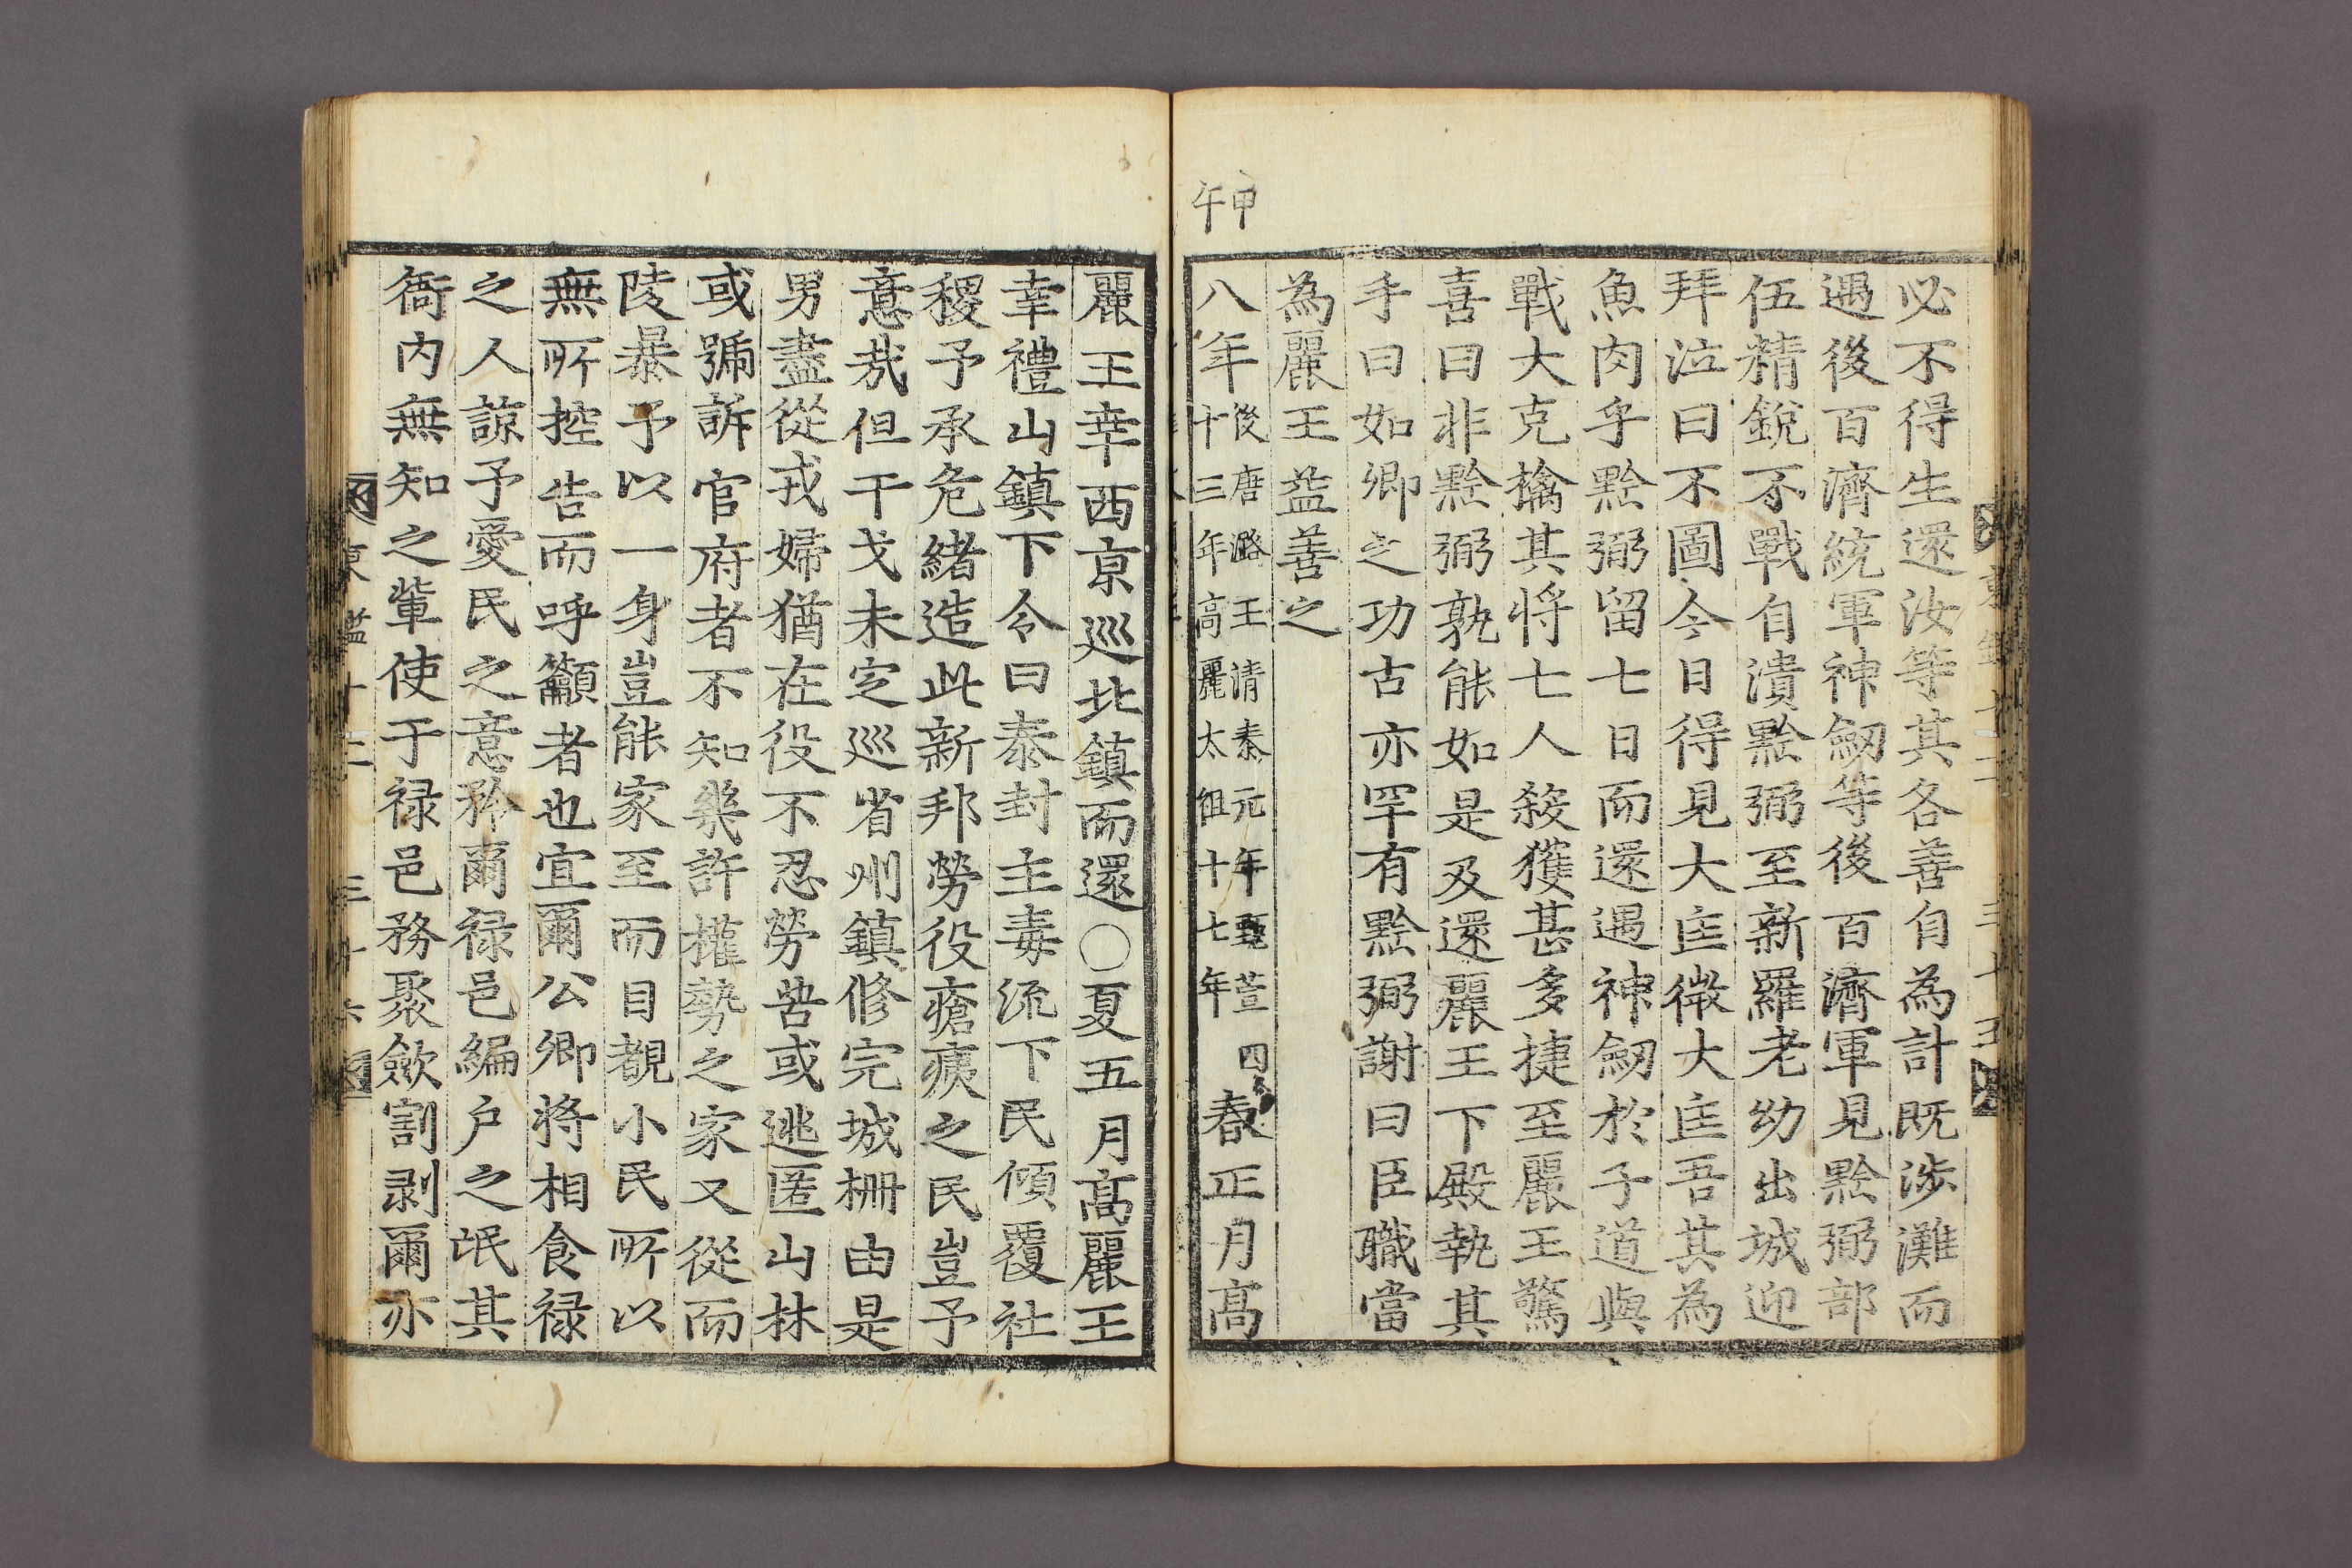 必不得生還汝等其各善自為計既涉灘而
遇後百濟統軍神劒等後百濟軍見黔弼部
伍精銳不戰自潰黔弼至新羅老幼出城迎
拜泣曰不圖今日得見大匡微大匡吾其為
魚肉乎黔弼留七日而還遇神劒於子道與
戰大克擒其将七人殺獲甚多捷至麗王驚
喜曰非黔弼孰能如是及還麗王下殿執其
手曰如卿之功古亦罕有黔弼謝曰臣職當
為麗王益善之
甲午
八年後唐潞王清泰元年甄萱四十三年高麗太祖十七年春正月高
麗王幸西京巡北鎮而還○夏五月高麗王
幸禮山鎮下令曰泰封主毒流下民傾覆社
稷予承危緒造此新邦勞役瘡痍之民豈予
意㦲但干戈未定巡省州鎮修完城柵由是
男盡從戎婦猶在役不忍勞苦或逃匿山林
或號訴官府者不知幾許權勢之家又從而
陵暴予以一身豈能家至而目覩小民所以
無所控告而呼籲者也宜爾公卿将相食禄
之人諒予愛民之意矜爾禄邑編户之氓其
衙内無知之輩使于禄邑務聚歛割剥爾亦
東鑑十二 三十六